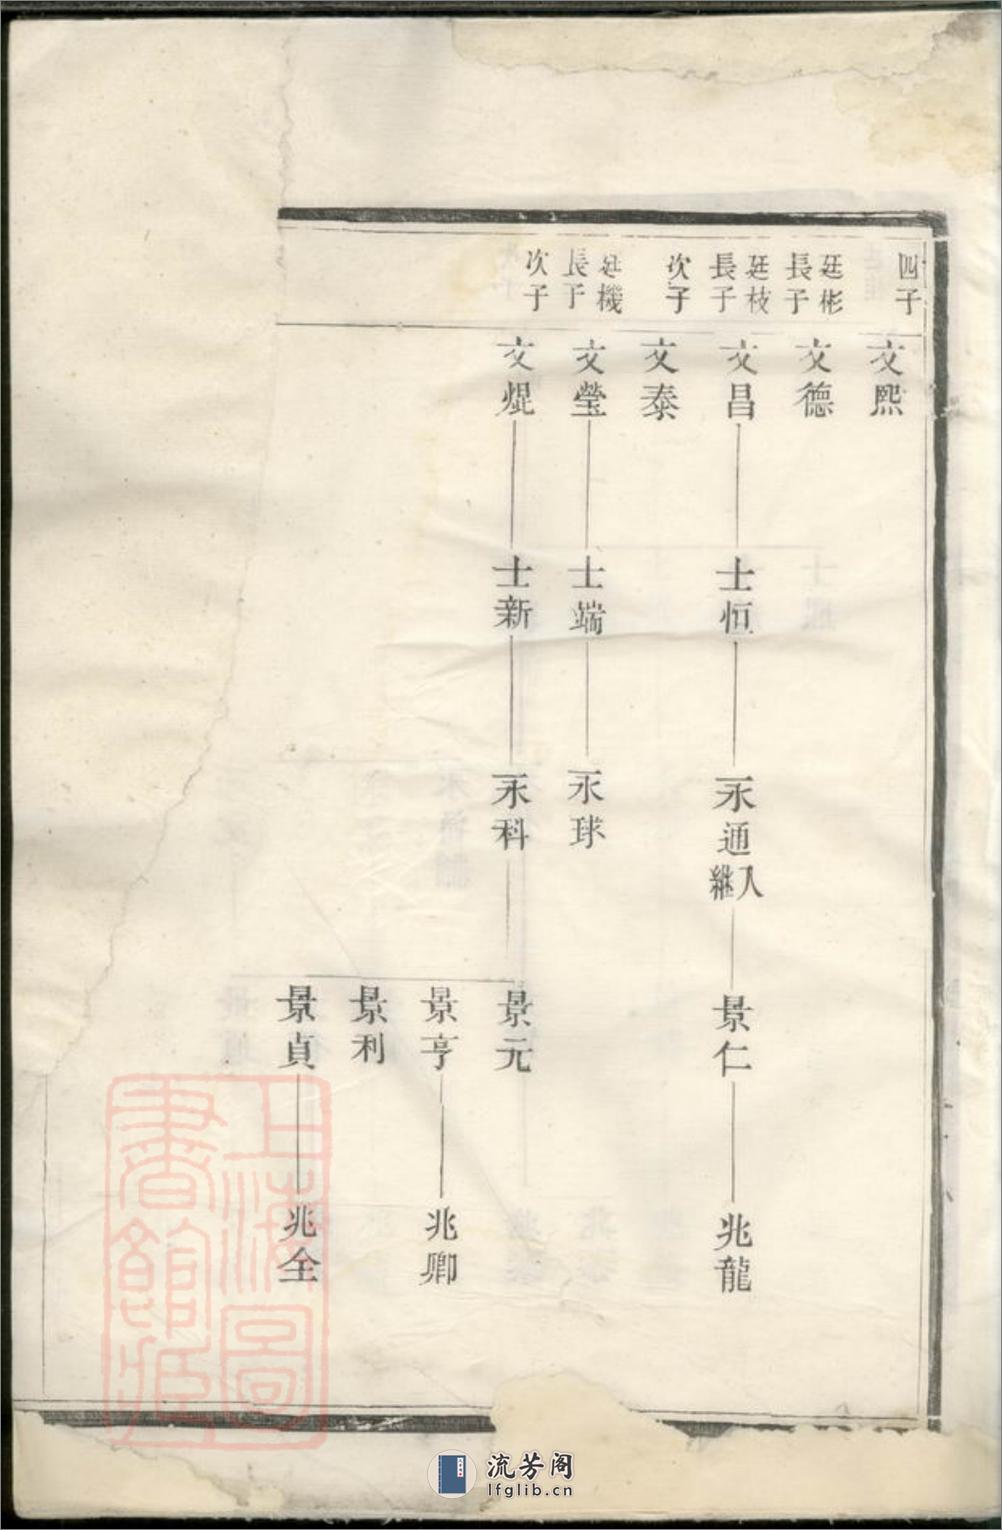 四子
文熙
廷彬
長子
文德
廷枝
長子
文昌
士恒
永通
入
繼
景仁
兆龍
次子
文泰
廷機
長子
文瑩
士端
永球
次子
文焜
士新
永科
景元
景亨
兆卿
景利
景貞
兆全
上海圖
書館藏
流芳阁
lfglib.cn